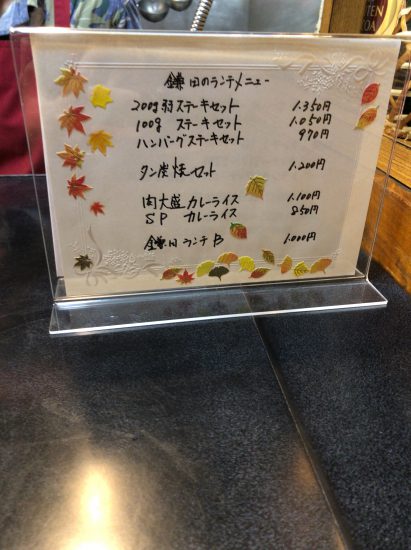 鎌田のランチメニュー
200g弱ステーキセット 1.350円
100g ステーキセット 1.050円
ハンバーグステーキセット 970円
タン炭焼セット 1.200円
肉大盛カレーライス 1.100円
SP カレーライス 850円
鎌田ランチB 1.000円
TEN